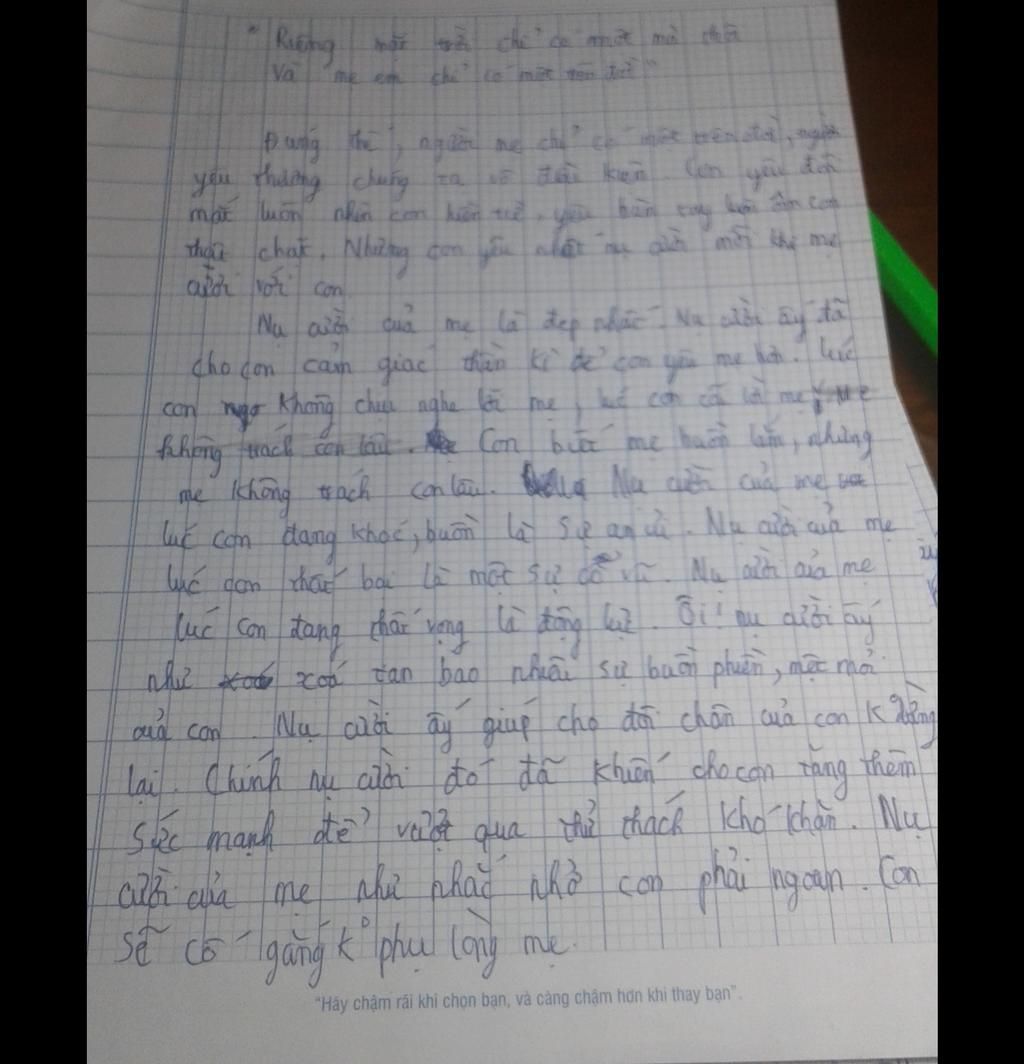 " Riêng mặt trời chỉ có một mà thôi
Và mẹ em chỉ có một trên đời "
Đúng thế, người mẹ chỉ có một trên đời, người
yêu thương chúng ta vô điều kiện. Con yêu đôi
mắt luôn nhìn con hiền từ, yêu bàn tay luôn ôm con
thật chặt. Nhưng con yêu nhất nụ cười mỗi khi mẹ
cười với con
Nụ cười của mẹ là đẹp nhất. Nụ cười ấy đã
cho con cảm giác thần kì để con yêu mẹ hơn. Lúc
con không chịu nghe lời mẹ, lúc con cãi lời mẹ
không trách con lâu. Con biết mẹ buồn lắm, nhưng
mẹ không trách con lâu. Nụ cười của mẹ
lúc con đang khóc, buồn là sự an ủi. Nụ cười của mẹ
lúc con thất bại là một sự cổ vũ. Nụ cười của mẹ
lúc con đang thất vọng là động lực. Ôi! nụ cười ấy
như xoá tan bao nhiêu sự buồn phiền, mệt mỏi
của con. Nụ cười ấy giúp cho đôi chân của con k dừng
lại. Chính nụ cười đó đã khiến cho con tăng thêm
sức mạnh để vượt qua thử thách khó khăn. Nụ
cười của mẹ như nhắc nhở con phải ngoan. Con
sẽ cố gắng k° phụ lòng mẹ.
"Hãy chậm rãi khi chọn bạn, và càng chậm hơn khi thay bạn".